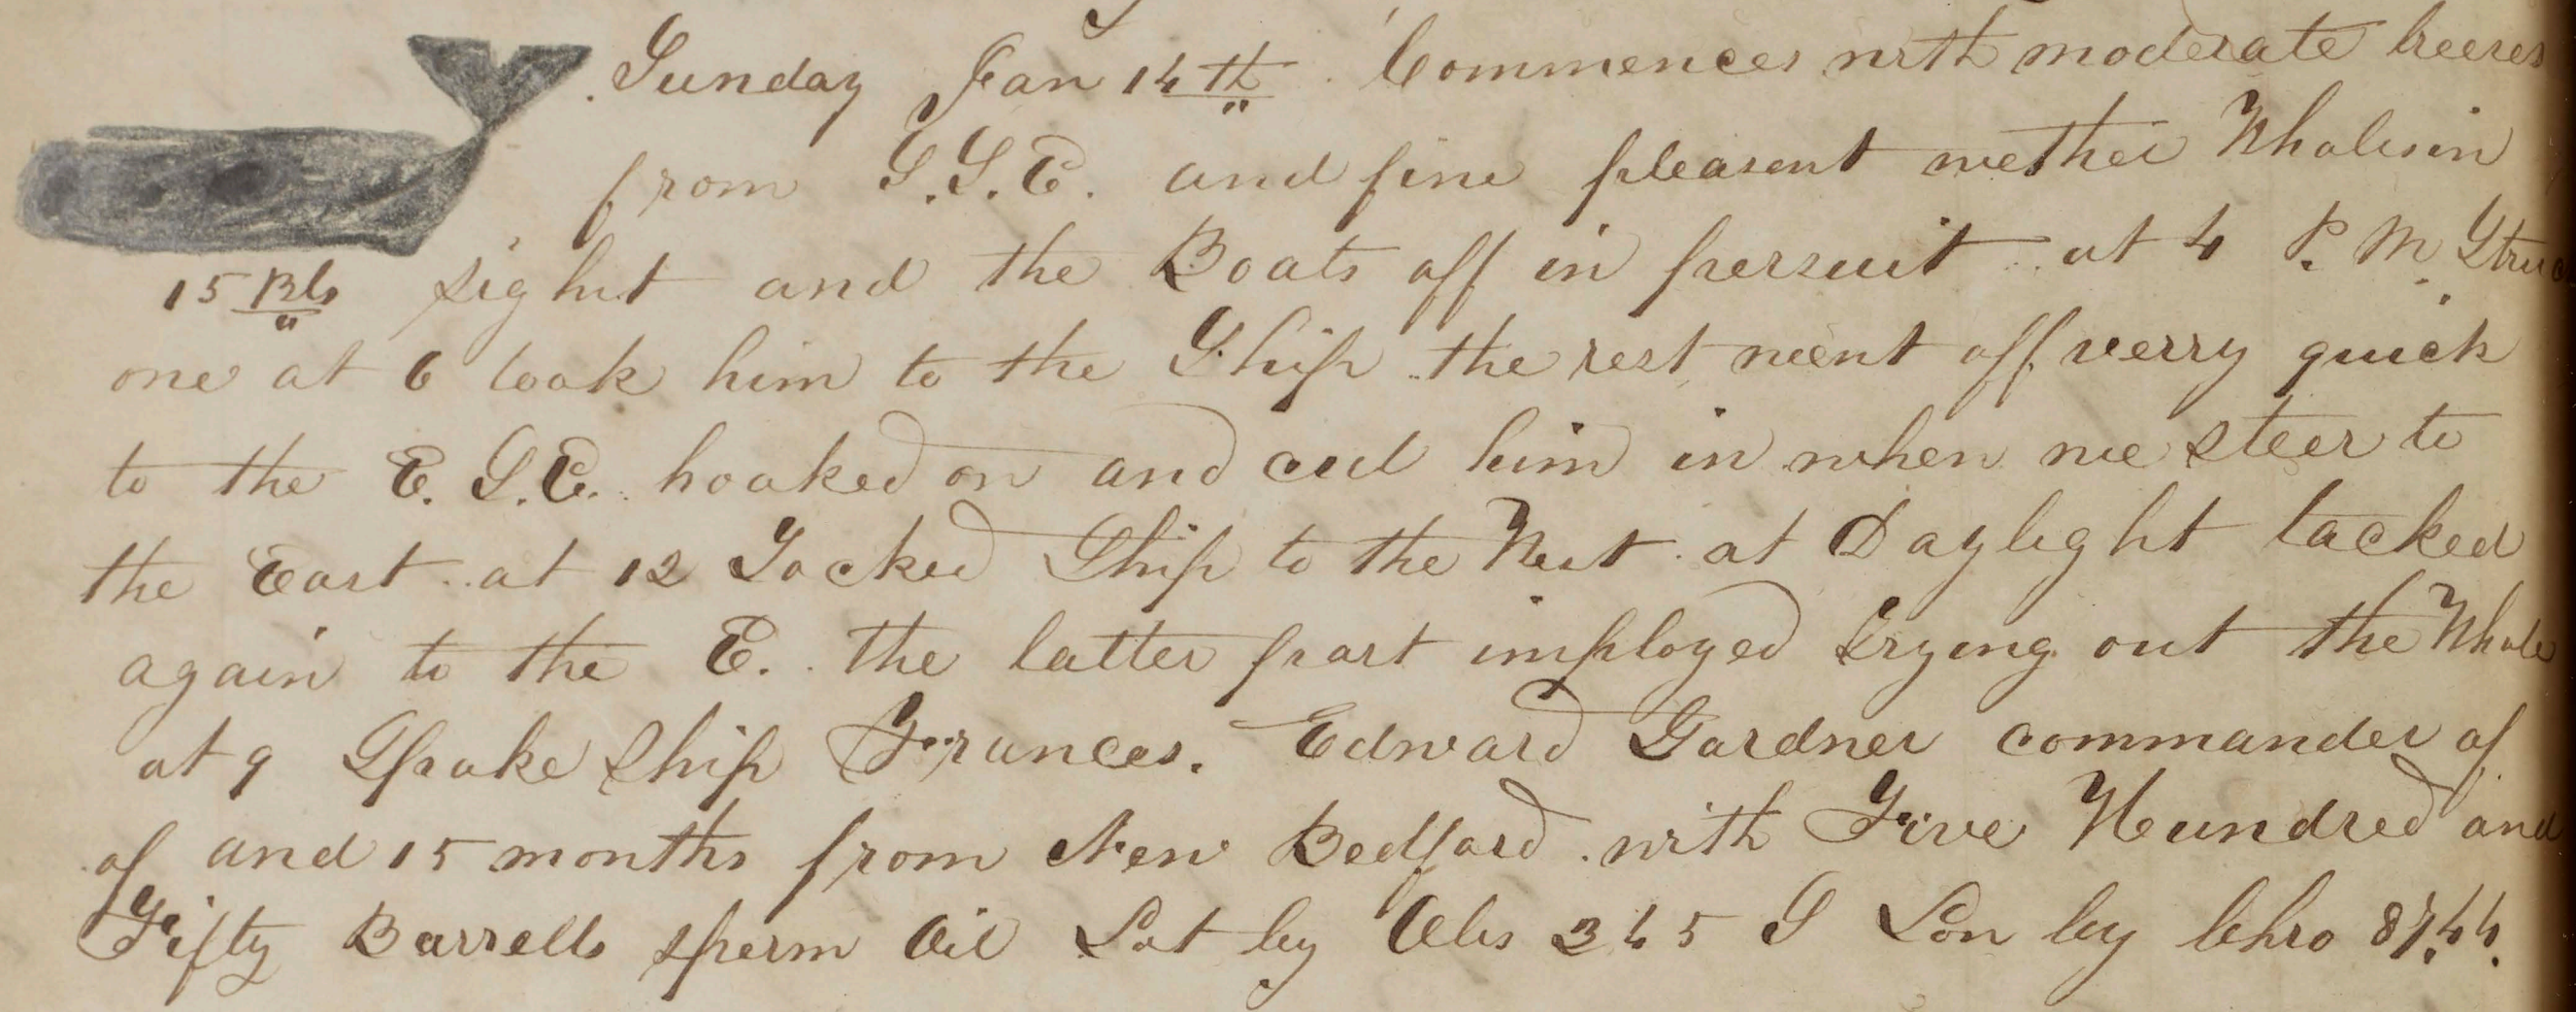 Sunday Jan 14th Commences with moderate breeses
from S.S.E. and fine pleasent wether Whales in
15 Bls sight and the Boats off in persuit at 4 P.M. Struc
one at 6 took him to the Ship the rest went off verry quick
to the E.S.E. hooked on and cut him in when we steer to
the East at 12 Tacked Ship to the West at Daylight tacked
again to the E. the latter part imployed trying out the Whale
at 9 Spoke Ship Frances. Edward Gardner commander of
of and 15 months from New Bedford with Five Hundred and
Fifty Barrells sperm Oil Lat by Obs 3 45 S Lon by Chro 87.44.